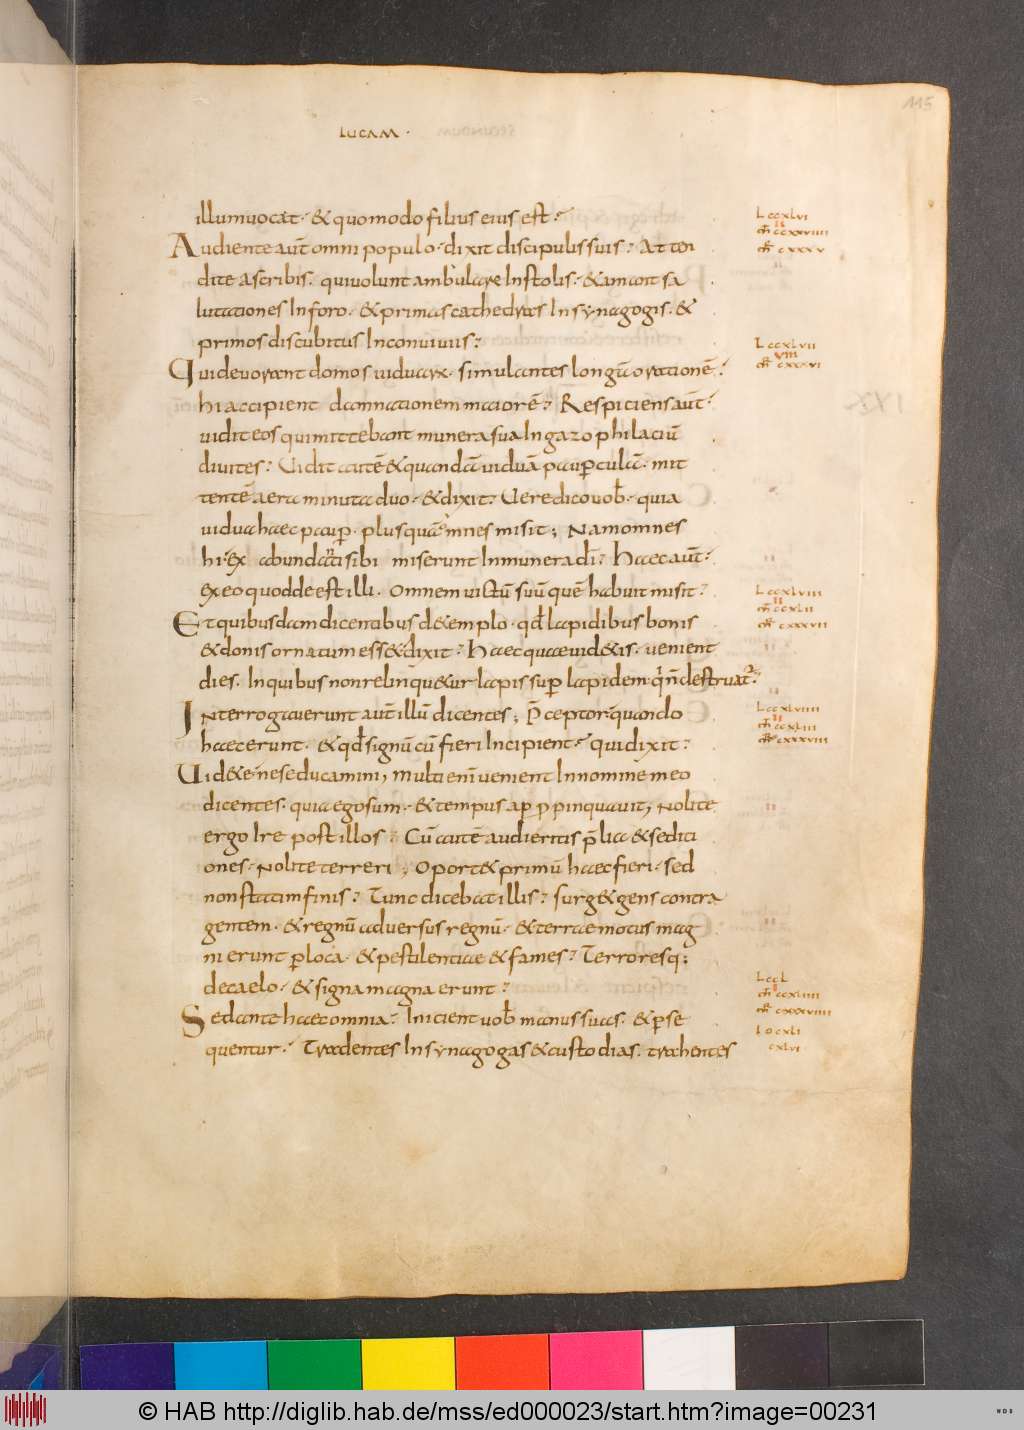 115
LUCAM·
illum uocat· & quomodo filius eius est?
Audiente aut̄ omni populo· dixit discipulis suis? Atten
dite a scribis· qui uolunt ambulare In stolis· & amant sa
lutationes In foro· & primas cathedras In synagogis· &
primos discubitus In conuiuiis?
Qui deuorant domos uiduarū· simulantes longā orationē?
hi accipient damnationem maiorē? Respiciens aut̄·
uidit eos qui mittebant munera sua In gazophilaciū
diuites? Uidit autē & quandā uiduā paup̄culā· mit
tentē aera minuta duo· & dixit? Uere dico uob̄· quia
uidua haec paup̄· plus quā omnes misit; Nam omnes
hi· Ex abundanti sibi miserunt In munera dī? Haec aut̄·
ex eo quod deest illi· Omnem uictū suū quē habuit misit?
Et quibusdam dicentibus de templo· qđ lapidibus bonis
& donis ornatum ess& dixit? Haec quae uid&is· uenient
dies· In quibus non relinqu&ur lapis sup̄ lapidem· q̄ n̄ destruat̄?
Interrogauerunt aut̄ illū dicentes; p̄ceptor· quando
haec erunt· & qđ signū cū fieri Incipient? qui dixit?
Uid&e· ne seducamini, multi eni uenient In nomine meo
dicentes· quia ego sum· & tempus ap̄p̄pinquauit, Nolite
ergo Ire post illos? Cū autē audieritis p̄lia & sediti
ones· Nolite terreri; Oport& primū haec fieri· sed
non statim finis? Tunc dicebat illis? surg& gens contra
gentem· & regnū aduersus regnū· & terrae motus mag
ni erunt p̄ loca· & pestilentiae & fames? Terroresq;
de caelo· & signa magna erunt?
Sed ante haec omnia? Inicient uob̄ manus suas· & p̄se
quentur· Tradentes In synagogas & custodias· trahentes
L ccxlvi
II
L ccxlvii
VIII
L ccxlviii
II
L ccxlviiii
II
L ccl
© HAB http://diglib.hab.de/mss/ed000023/start.htm?image=00231